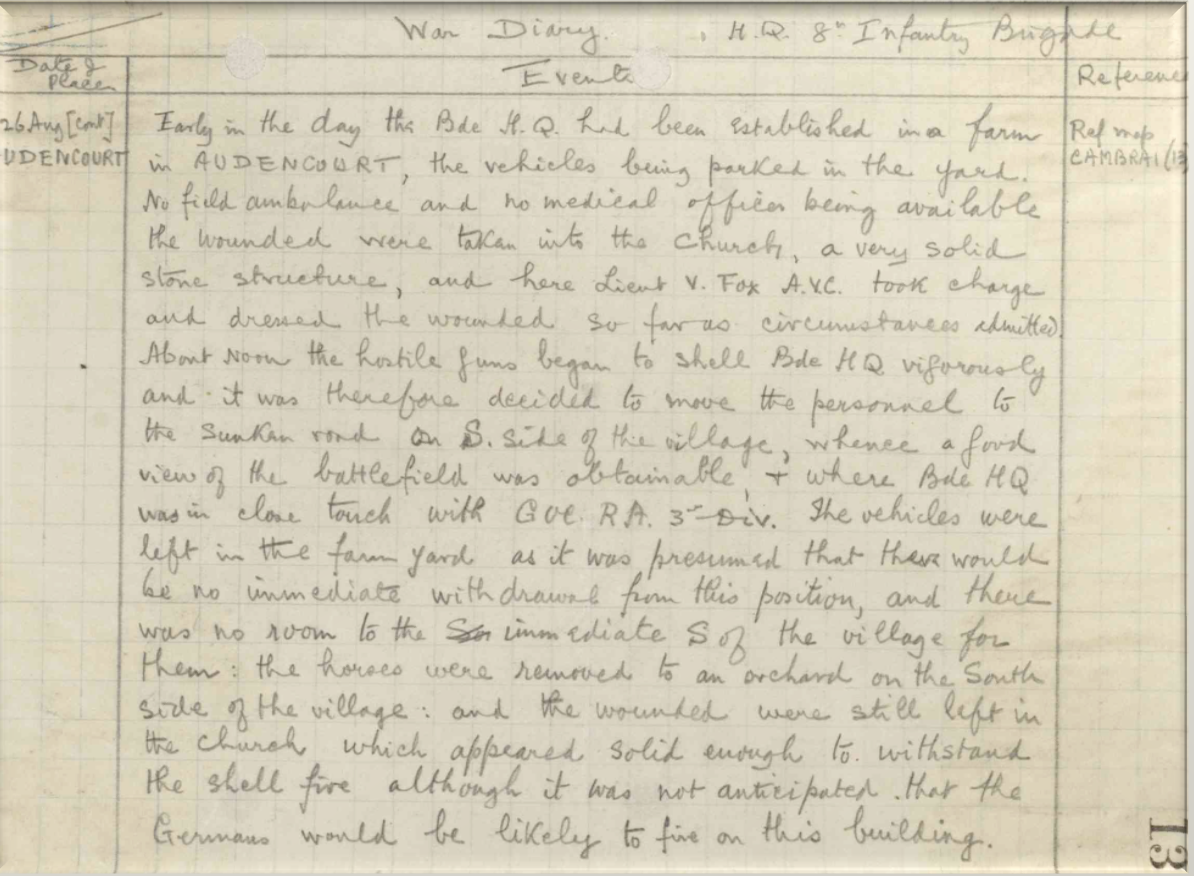 War Diary. H.Q. 8th Infantry Brigade
Date & Place
Events
Reference
26 Aug [cont]
UDENCOURT
Ref map
CAMBRAI (13
Early in the day the Bde H.Q. had been established in a farm
in AUDENCOURT, the vehicles being parked in the yard.
No field ambulance and no medical officer being available
the wounded were taken into the church, a very solid
stone structure, and here Lieut V. Fox A.V.C. took charge
and dressed the wounded so far as circumstances admitted.
About Noon the hostile guns began to shell Bde HQ vigorously
and it was therefore decided to move the personnel to
the sunken road on S. side of the village, whence a good
view of the battlefield was obtainable, + where Bde HQ
was in close touch with GOC. RA. 3rd Div. The vehicles were
left in the farm yard as it was presumed that there would
be no immediate withdrawal from this position, and there
was no room to the immediate S of the village for
them: the horses were removed to an orchard on the South
side of the village: and the wounded were still left in
the church which appeared solid enough to withstand
the shell fire although it was not anticipated that the
Germans would be likely to fire on this building.
13